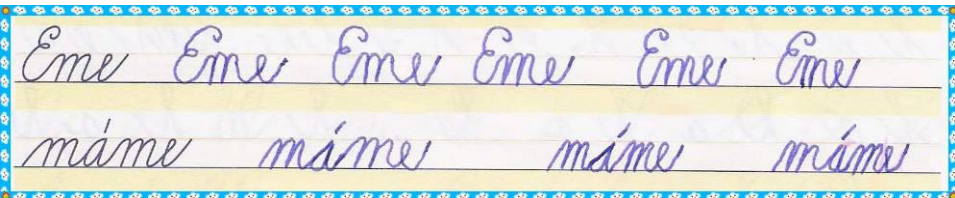 Eme Eme Eme Eme Eme Eme
máme máme máme máme